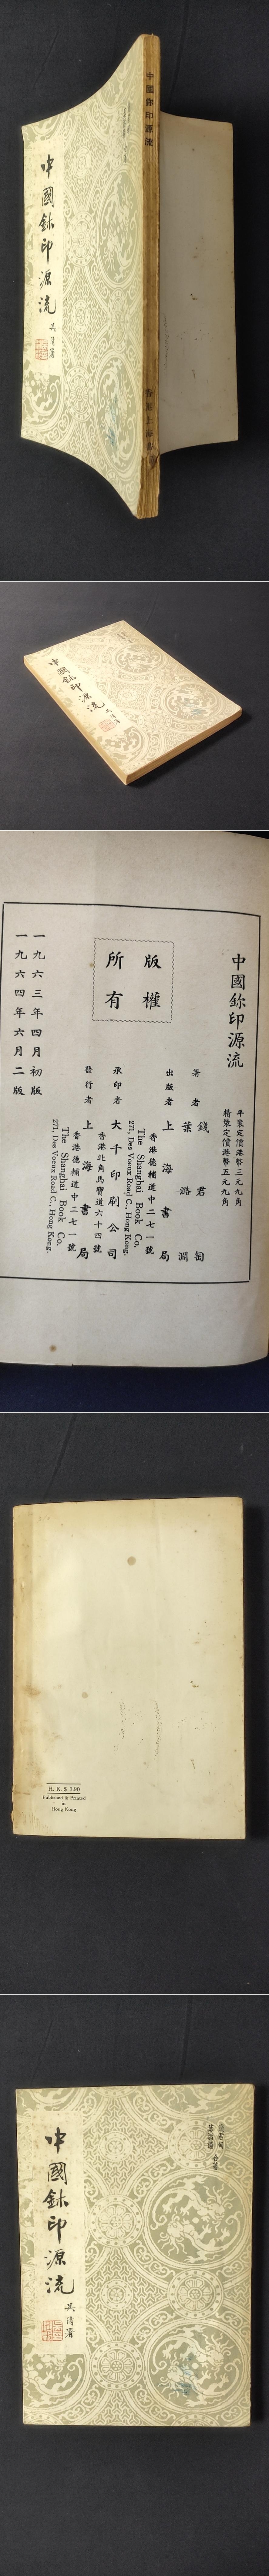 中國鉨印源流
香港上海書局
中國鉨印源流
中國鉨印源流
中國鉨印源流
平裝定價港幣三元九角
精裝定價港幣五元九角
著者 錢君匋
葉潞淵
出版者 上海書局
香港德輔道中二七一號
The Shanghai Book Co.
271, Des Voeux Road C., Hong Kong.
承印者 大千印刷公司
香港北角馬寶道六十四號
發行者 上海書局
香港德輔道中二七一號
The Shanghai Book Co.
271, Des Voeux Road C., Hong Kong.
版權
所有
一九六三年四月初版
一九六四年六月二版
H. K. $ 3.90
Published & Printed
in
Hong Kong
錢君匋
葉潞淵
合著
中國鉨印源流